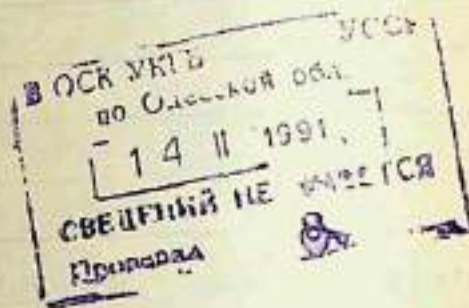 В ОСК УКГБ УССР
по Одесской обл.
14 II 1991.
СВЕДЕНИЙ НЕ ИМЕЕТСЯ
Проверял